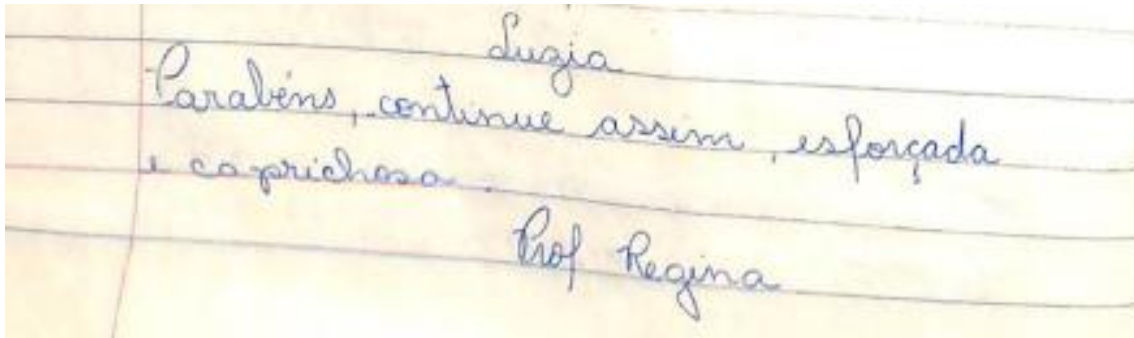 Luzia
Parabéns, continue assim, esforçada
e caprichosa.
Prof Regina